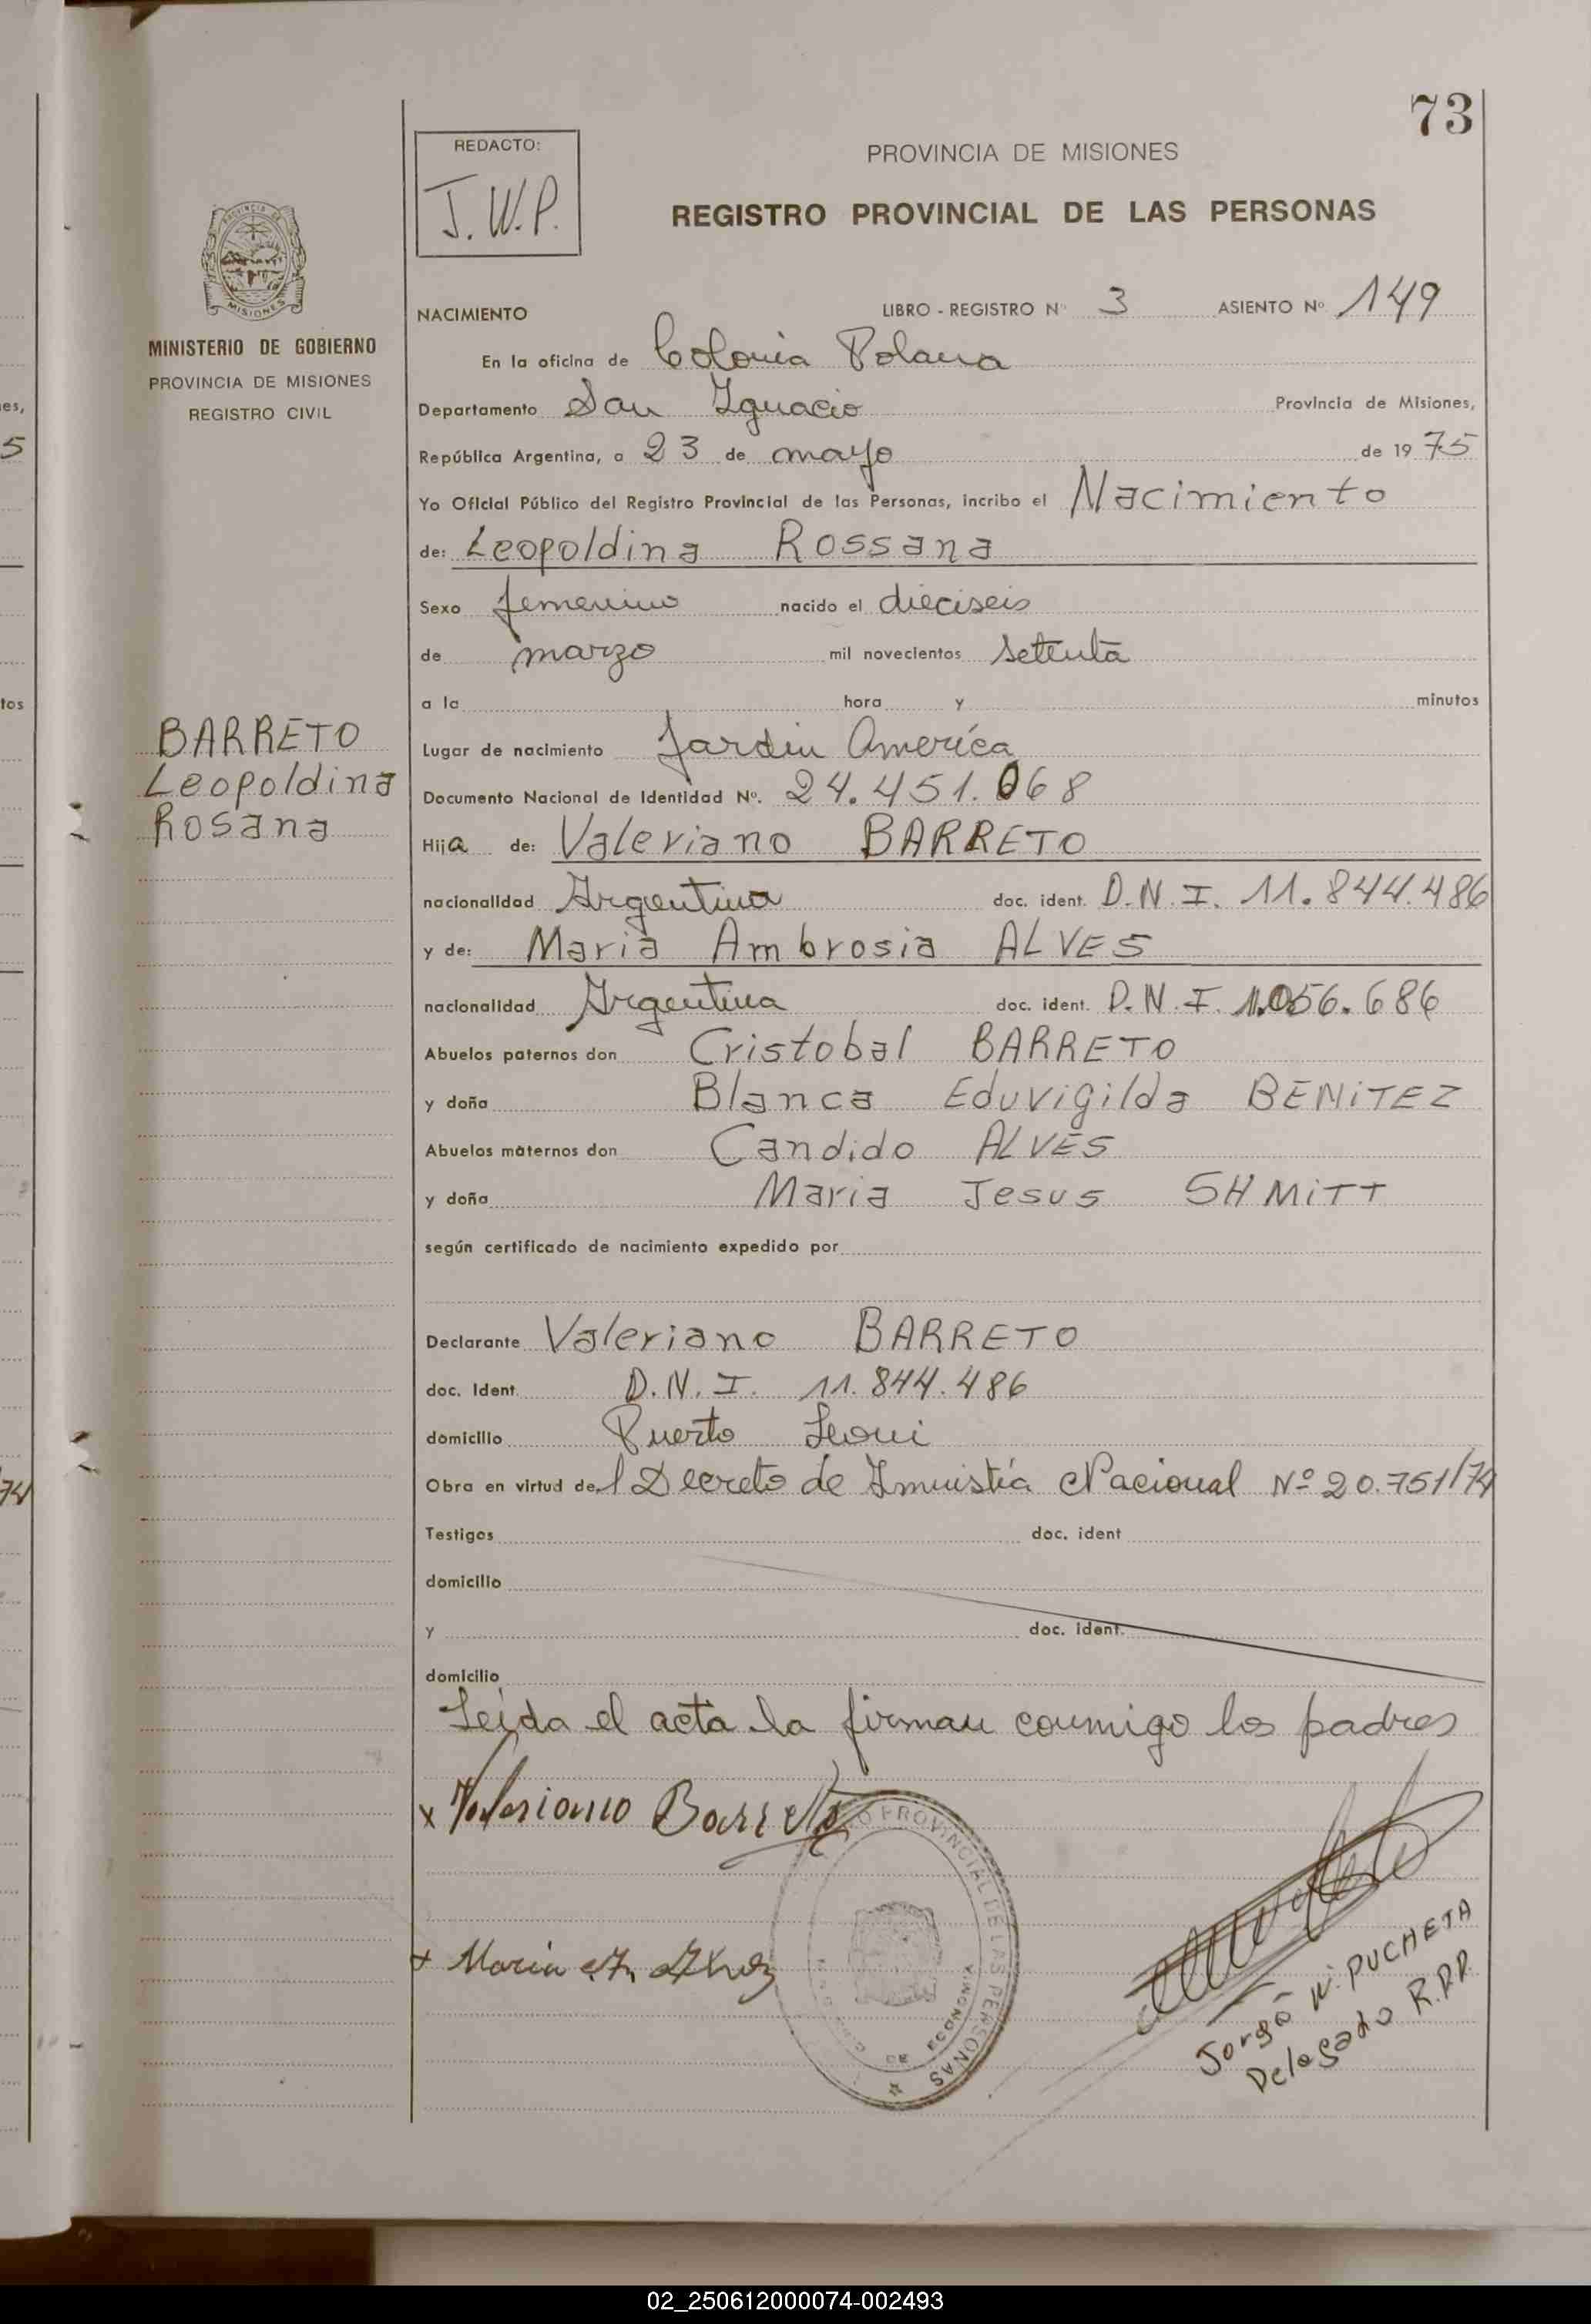 73
REDACTO:
J.W.P.
PROVINCIA DE MISIONES
REGISTRO PROVINCIAL DE LAS PERSONAS
MISIONES
MINISTERIO DE GOBIERNO
PROVINCIA DE MISIONES
REGISTRO CIVIL
NACIMIENTO LIBRO - REGISTRO Nº 3 ASIENTO Nº 149
En la oficina de Colonia Polana
Departamento San Ignacio Provincia de Misiones,
República Argentina, a 23 de mayo de 19 75
Yo Oficial Público del Registro Provincial de las Personas, incribo el Nacimiento
de: Leopoldina Rossana
Sexo femenino nacido el dieciseis
de marzo mil novecientos setenta
a la hora y minutos
BARRETO
Leopoldina
Rosana
Lugar de nacimiento Jardin America
Documento Nacional de Identidad Nº. 24.451.068
Hija de: Valeriano BARRETO
nacionalidad Argentina doc. ident. D.N.I. 11.844.486
y de: Maria Ambrosia ALVES
nacionalidad Argentina doc. ident. D.N.I. 056.686
Abuelos paternos don Cristobal BARRETO
y doña Blanca Eduvigilda BENITEZ
Abuelos maternos don Candido ALVES
y doña Maria Jesus SHMITT
según certificado de nacimiento expedido por
Declarante Valeriano BARRETO
doc. Ident. D.N.I. 11.844.486
domicilio Puerto Leoni
Obra en virtud del Decreto de Amnistía Nacional Nº 20.751/74
Testigos doc. ident
domicilio
y doc. ident.
domicilio
Leida el acta la firman conmigo los padres
x Valeriano Barreto
PROVINCIAL DE LAS PERSONAS
x Maria
Jorge W. PUCHETA
Delegado R.P.P.
es,
5
tos
74
02_250612000074-002493